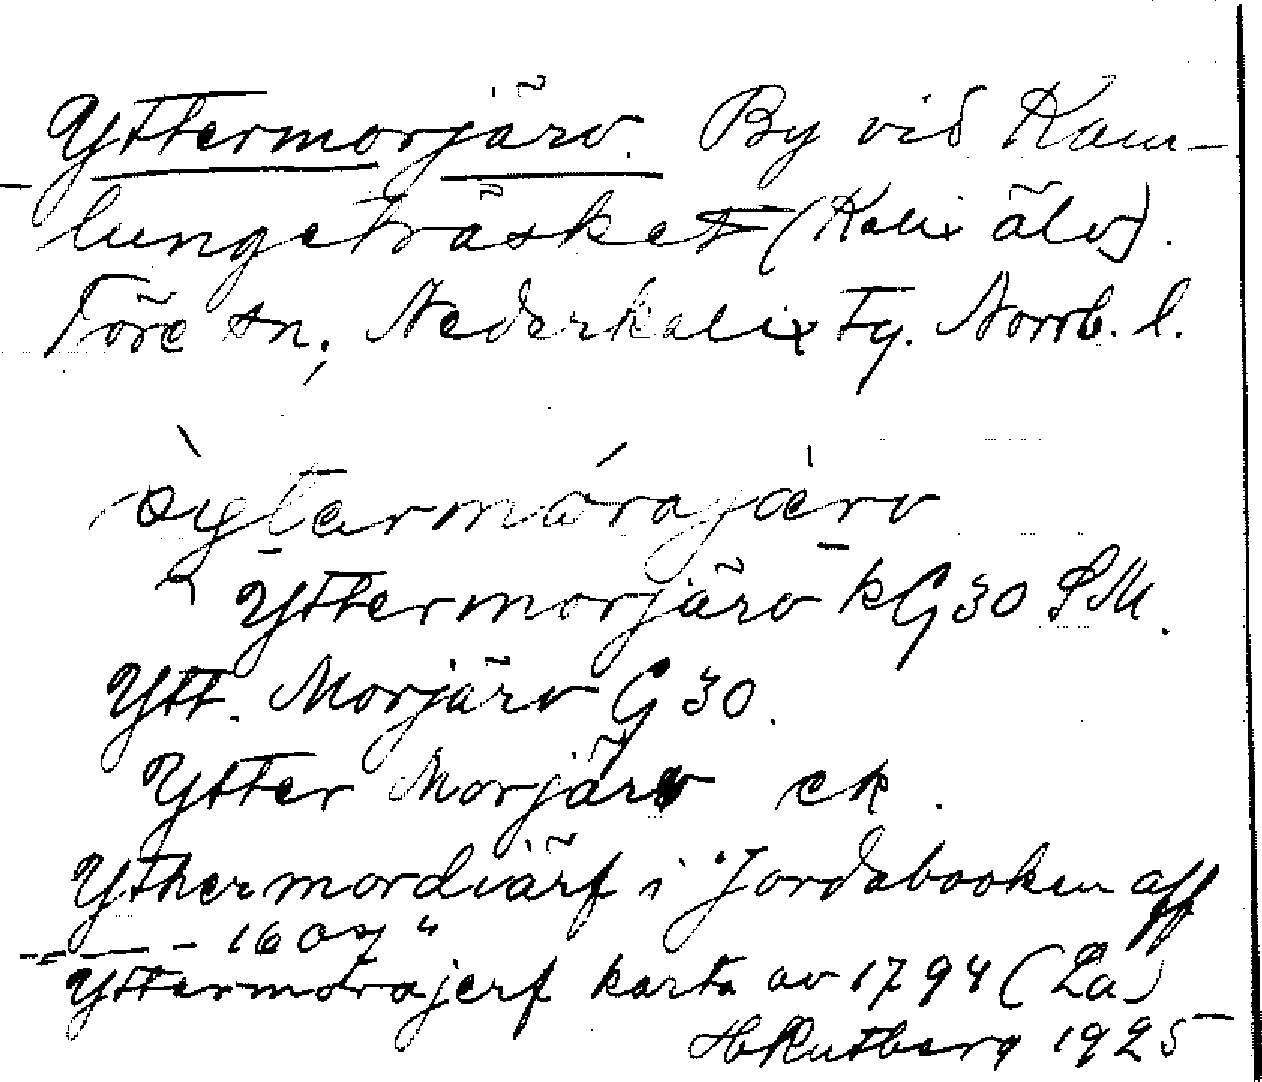 Yttermorjärv. By vid Kam-
lungeträsket (Kalix älv).
Töre sn, Nederkalix tg. Norrb. l.
Yttermorjärv kG30 SM.
Ytt. Morjärv G30.
Ytter Morjärv ek.
Ythermordiärf i "Jordabooken aff
1607"
Yttermorajerf karta av 1794 (La)
H Rutberg 1925